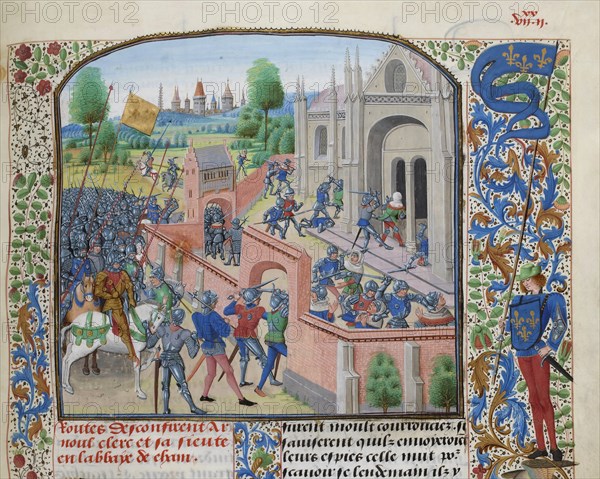 PHOTO12
xx
vii.ii
Routes desconfirent Ar
noul clerc et sa sieute
en labbaye de eham.
furent moult courrouciez. si
sauiserent quilz enuoieroie
leurs espies celle nuit po
scauoir se lendemain ilz y